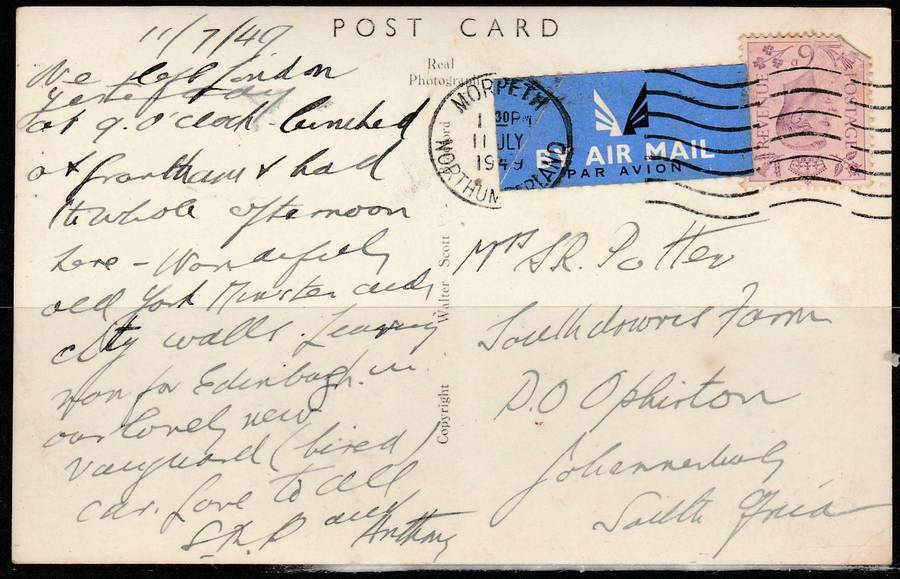 POST CARD
11/7/49
We left London
yesterday
at 9. o'clock - lunched
at Grantham & had
the whole afternoon
here - Wonderful
old York Minster and
city walls. Leaving
now for Edinbugh. in
our lovely new
Vanguard (hired)
car. Love to all
S.R.P and Anthony
Real
Photograph
Copyright Walter Scott
MORPETH
30P
11 JLY
1949
NORTHUMBERLAND
BY AIR MAIL
PAR AVION
REVENUE
6D
POSTAGE
Mrs S.R. Potter
Southdowns Farm
P.O Ophirton
Johannesburg
South Africa